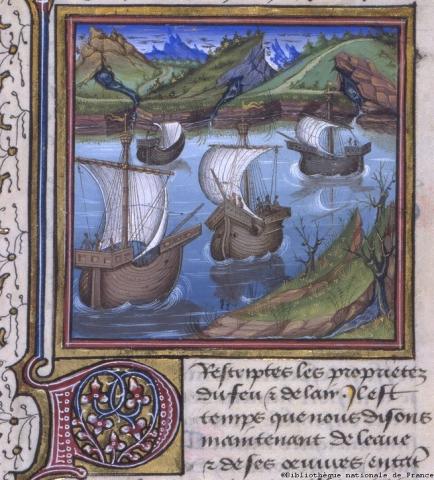 DEscriptes les proprietez
du feu & de lair. Il est
temps que nous disons
maintenant de leaue
& de ses œuures entāt
©Bibliothèque nationale de France